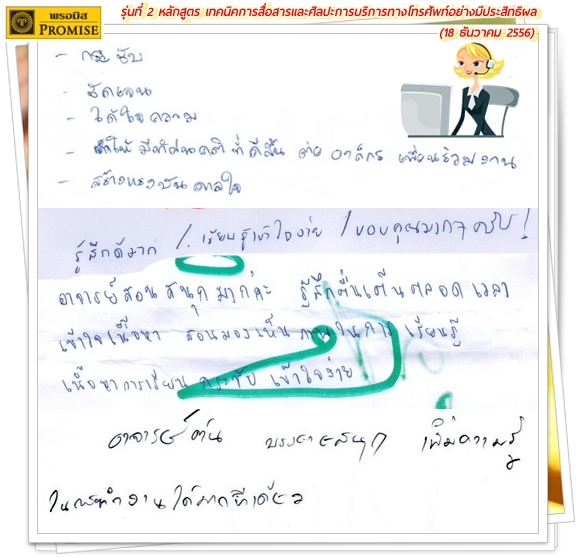 พรอมิส
PROMISE
รุ่นที่ 2 หลักสูตร เทคนิคการสื่อสารและศิลปะการบริการทางโทรศัพท์อย่างมีประสิทธิผล
(18 ธันวาคม 2556)
- กระชับ
- ชัดเจน
- ได้ใจความ
- ทำให้ มีทัศนคติ ที่ดีขึ้น ต่อ องค์กร เพื่อนร่วมงาน
- สร้างแรงบันดาลใจ
รู้สึกดีมาก / เรียนรู้เข้าใจง่าย / ขอบคุณมากๆ ครับ!
อาจารย์สอนสนุกมากค่ะ รู้สึกตื่นเต้นตลอดเวลา
เข้าใจเนื้อหา สอนมองเห็นภาพในการเรียนรู้
เนื้อหาการเรียน กระชับ เข้าใจง่าย
อาจารย์ต่น บรรยายสนุก เพิ่มความรู้
ในการทำงานได้มากทีเดียว